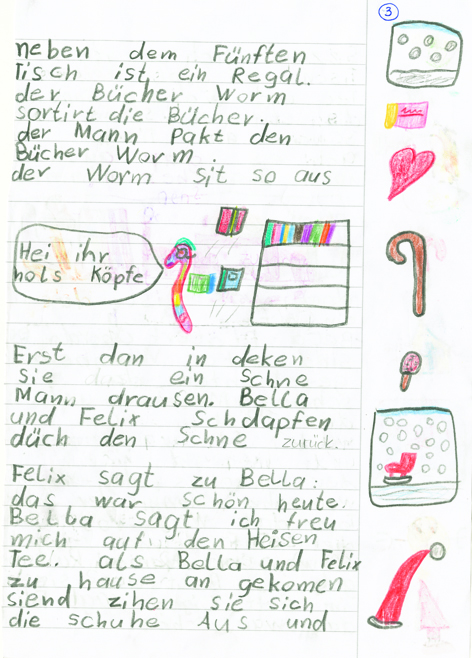 3
neben dem Fünften
Tisch ist ein Regal.
der Bücher Worm
sortirt die Bücher.
der Mann Pakt den
Bücher Worm.
der Worm sit so aus
Hei ihr
hols Köpfe
Erst dan in deken
Sie ein Schne
Mann drausen. Bella
und Felix Schdapfen
düch den Schne zurück.
Felix sagt zu Bella:
das war schön heute.
Bella sagt ich freu
mich auf den Heisen
Tee. als Bella und Felix
zu hause an gekomen
siend zihen sie sich
die schuhe Aus und